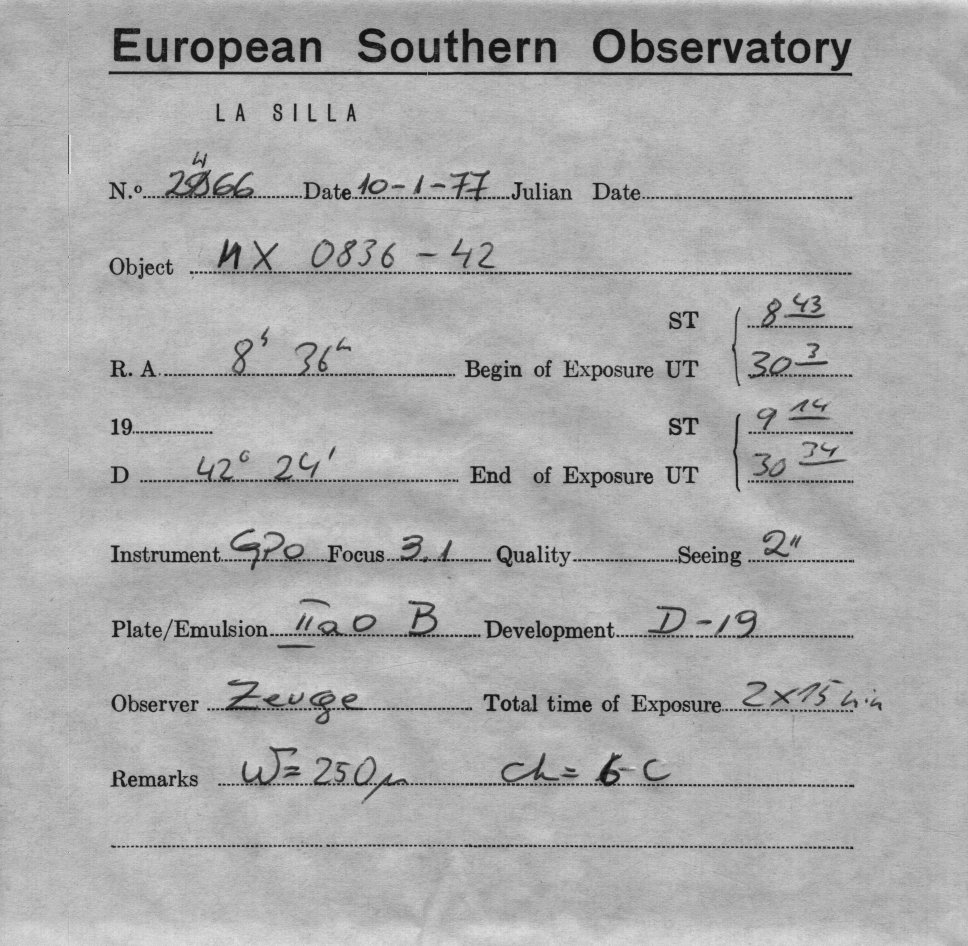 European Southern Observatory
LA SILLA
N.º 2466 Date 10-1-77 Julian Date
Object MX 0836 - 42
ST 8 43
R. A. 8h 36m Begin of Exposure UT 30 3
19 ST 9 14
D 42° 24' End of Exposure UT 30 34
Instrument GPO Focus 3.1 Quality Seeing 2"
Plate/Emulsion IIa O B Development D-19
Observer Zeuge Total time of Exposure 2x15 min
Remarks W = 250μ ch = 6-C